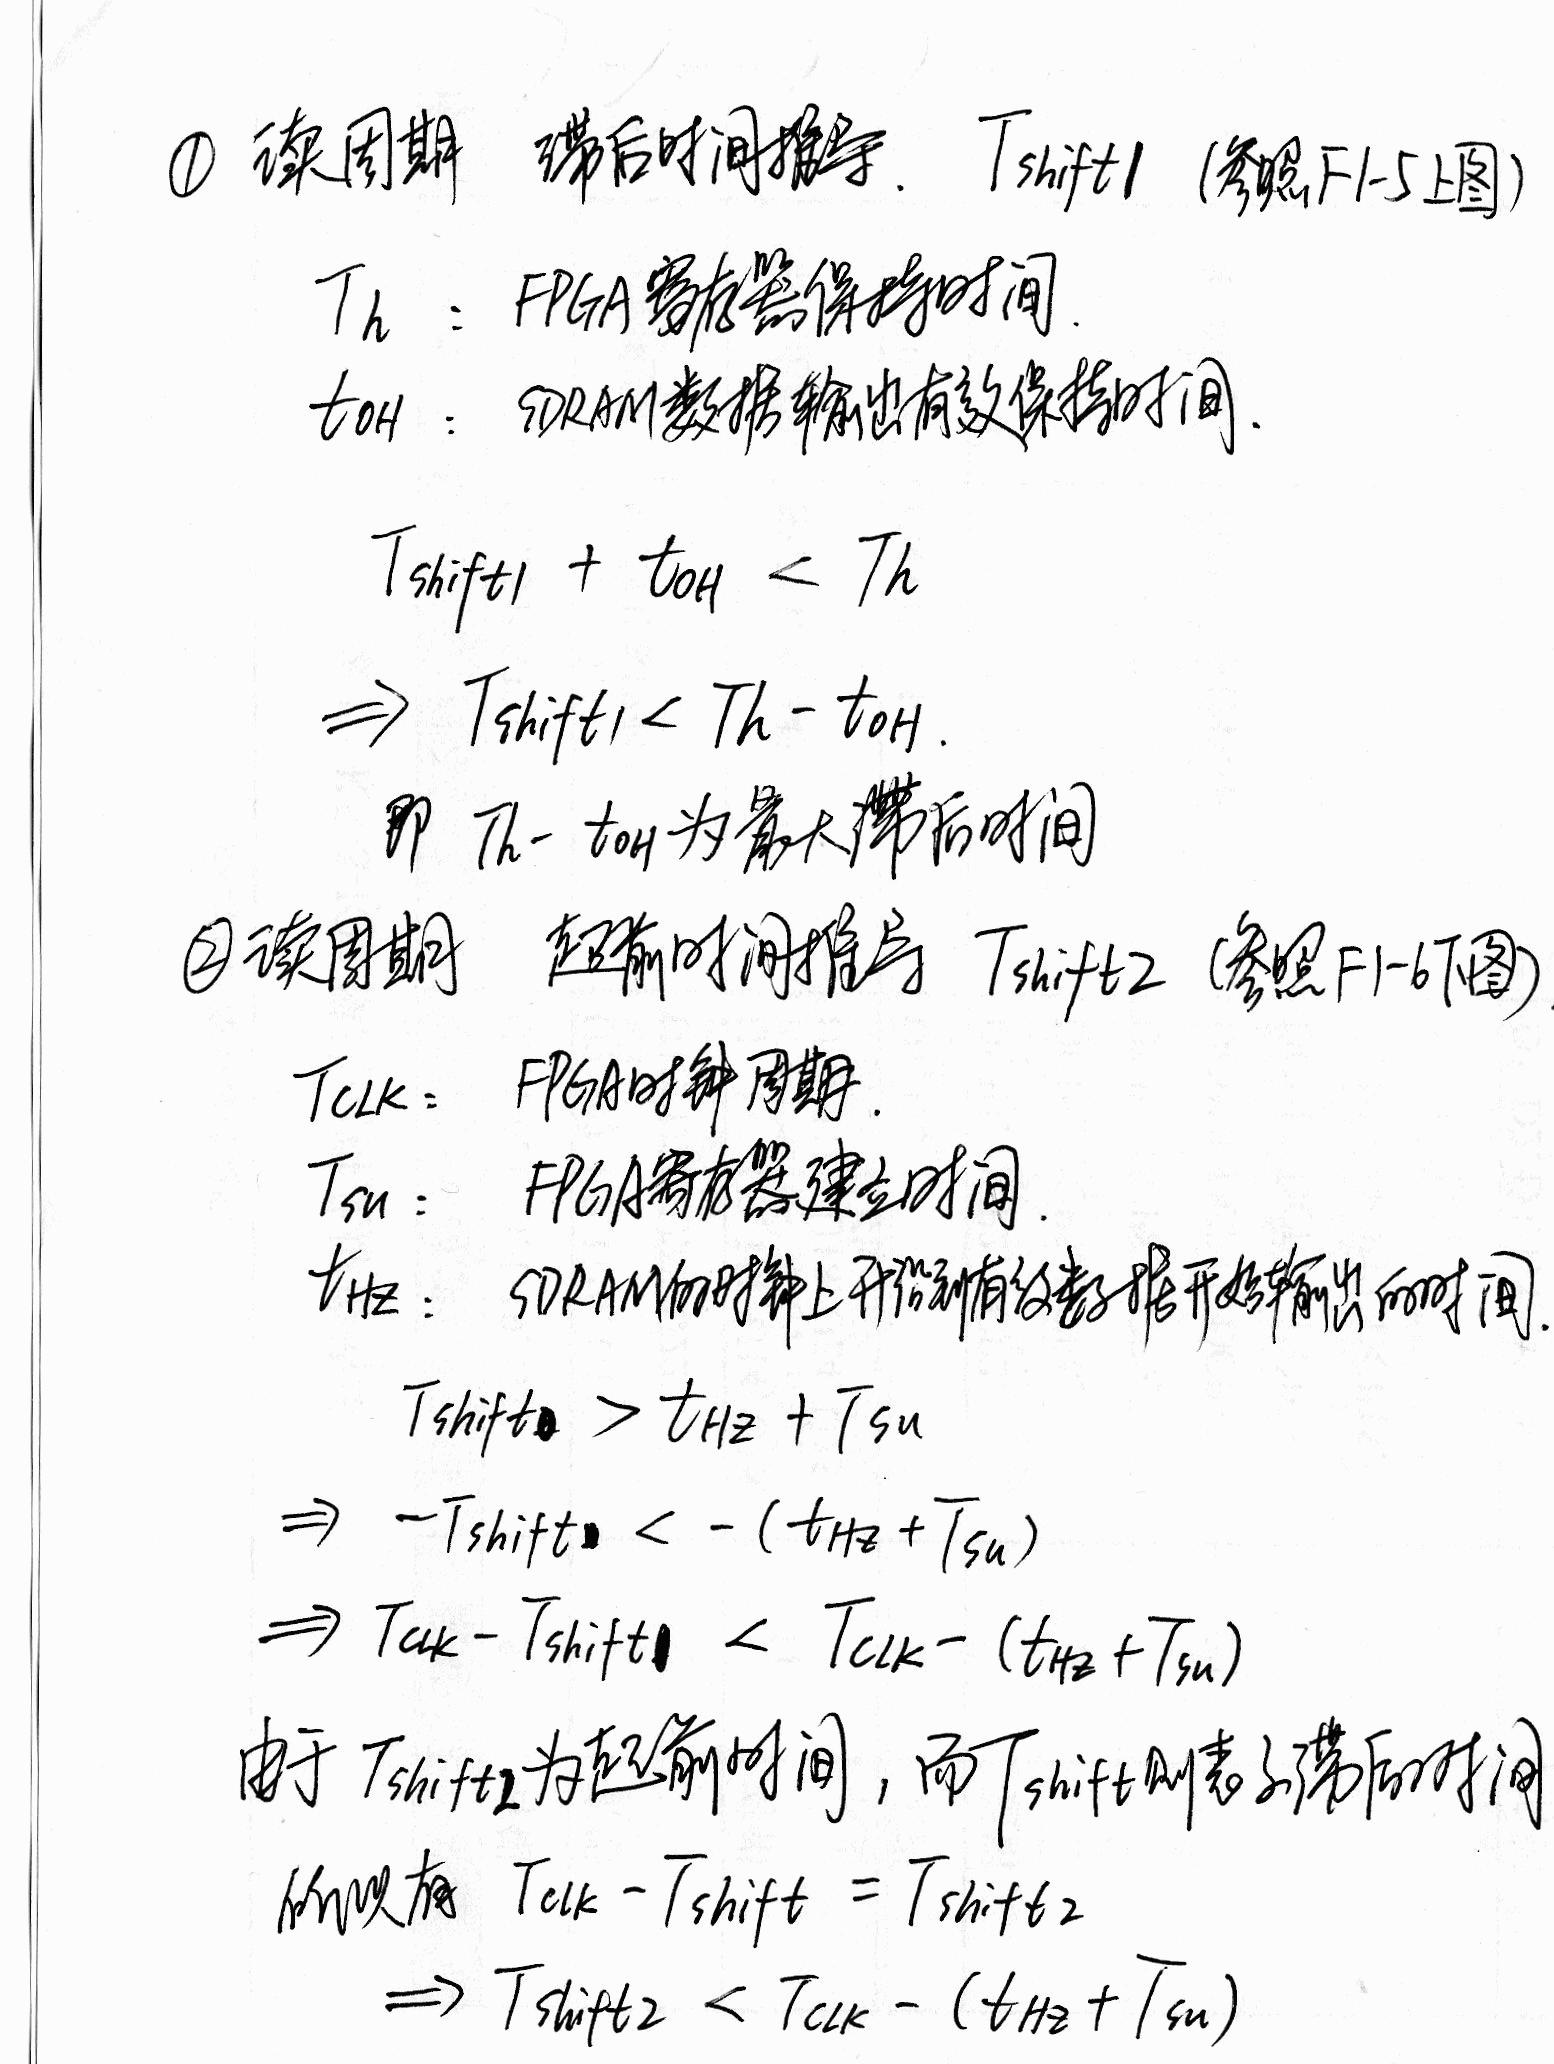 ① 读周期 滞后时间推导. Tshift1 (参照F1-5上图)
Th : FPGA寄存器保持时间.
tOH : SDRAM数据输出有效保持时间.
Tshift1 + tOH < Th
⇒ Tshift1 < Th - tOH.
即 Th - tOH 为最大滞后时间
② 读周期 超前时间推导 Tshift2 (参照F1-6下图).
TCLK : FPGA时钟周期.
Tsu : FPGA寄存器建立时间.
tHZ : SDRAM的时钟上升沿到有效数据开始输出的时间.
Tshift > tHZ + Tsu
⇒ -Tshift < -(tHZ + Tsu)
⇒ TCLK - Tshift < TCLK - (tHZ + Tsu)
由于 Tshift2 为超前时间，而Tshift则表示滞后时间
所以有 TCLK - Tshift = Tshift2
⇒ Tshift2 < TCLK - (tHZ + Tsu)